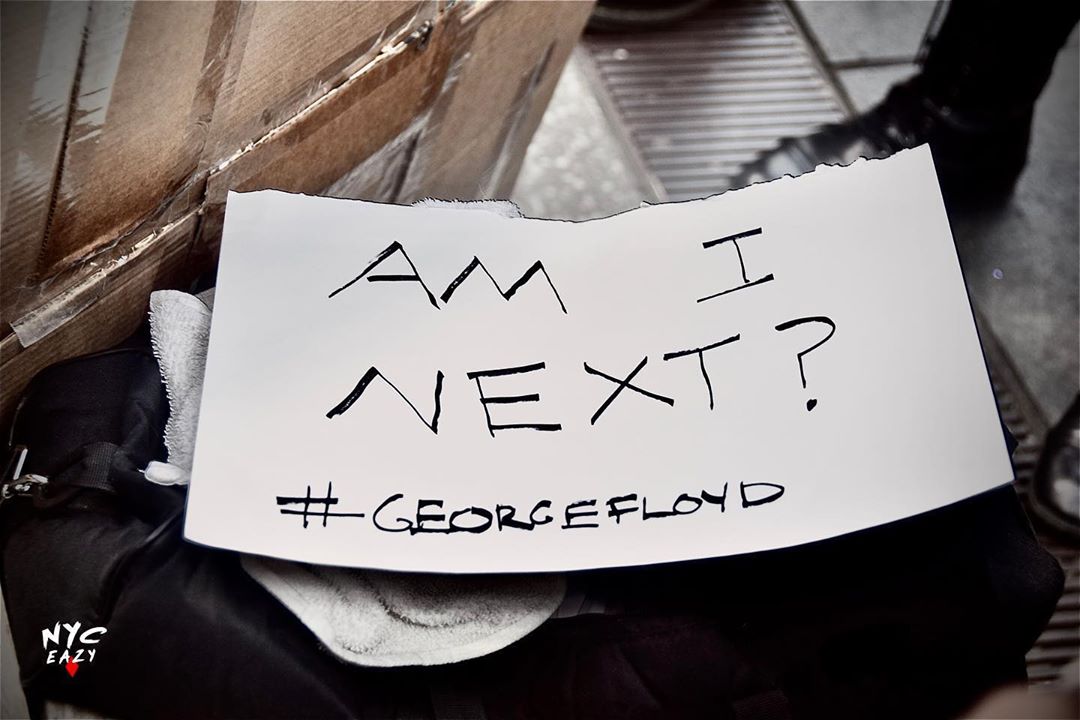 AM I
NEXT?
#GEORGEFLOYD
NYC
EAZY